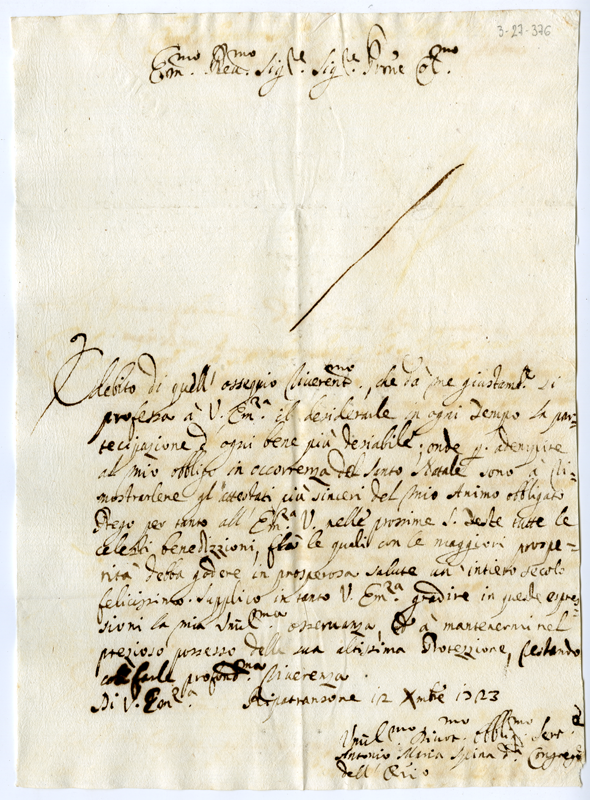 3-27-376
Em.mo Reu.mo Sig.re Sig.re Prne Col.mo
È debito di quell' osseqvio riuerent.mo, che dà me giustam.te si
professa à V. Em.za il desiderarle in ogni tempo la par=
tecipazione d' ogni bene più desiabile; onde p. adempire
al mio obbligo in occorrenza del Santo Natale sono à di=
mostrarlene gl' attestati più sinceri del mio Animo obbligato
Prego per tanto all' Em.za V. nelle prossime S. Feste tutte le
celesti benedizzioni, frà le quali con le maggiori prospe=
rità debba godere in prosperosa salute un' intiero secolo
felicissimo. Supplico in tanto V. Em.za gradire in queste espres=
sioni la mia Vmil.ma osseruanza et à mantenermi nel
prezioso possesso della sua altissima Protezzione, restando
col farle profond.ma riuerenza.
Di V. Em.za Ripatransone 12 Xmbre 1723
Vmil.mo Diuot.mo obblig.mo Seru.
Antonio Maria Spina d. Congreg.
dell' Orio